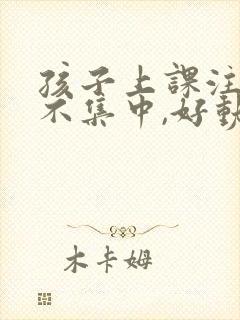 孩子上課注
不集中,好動
木卡姆